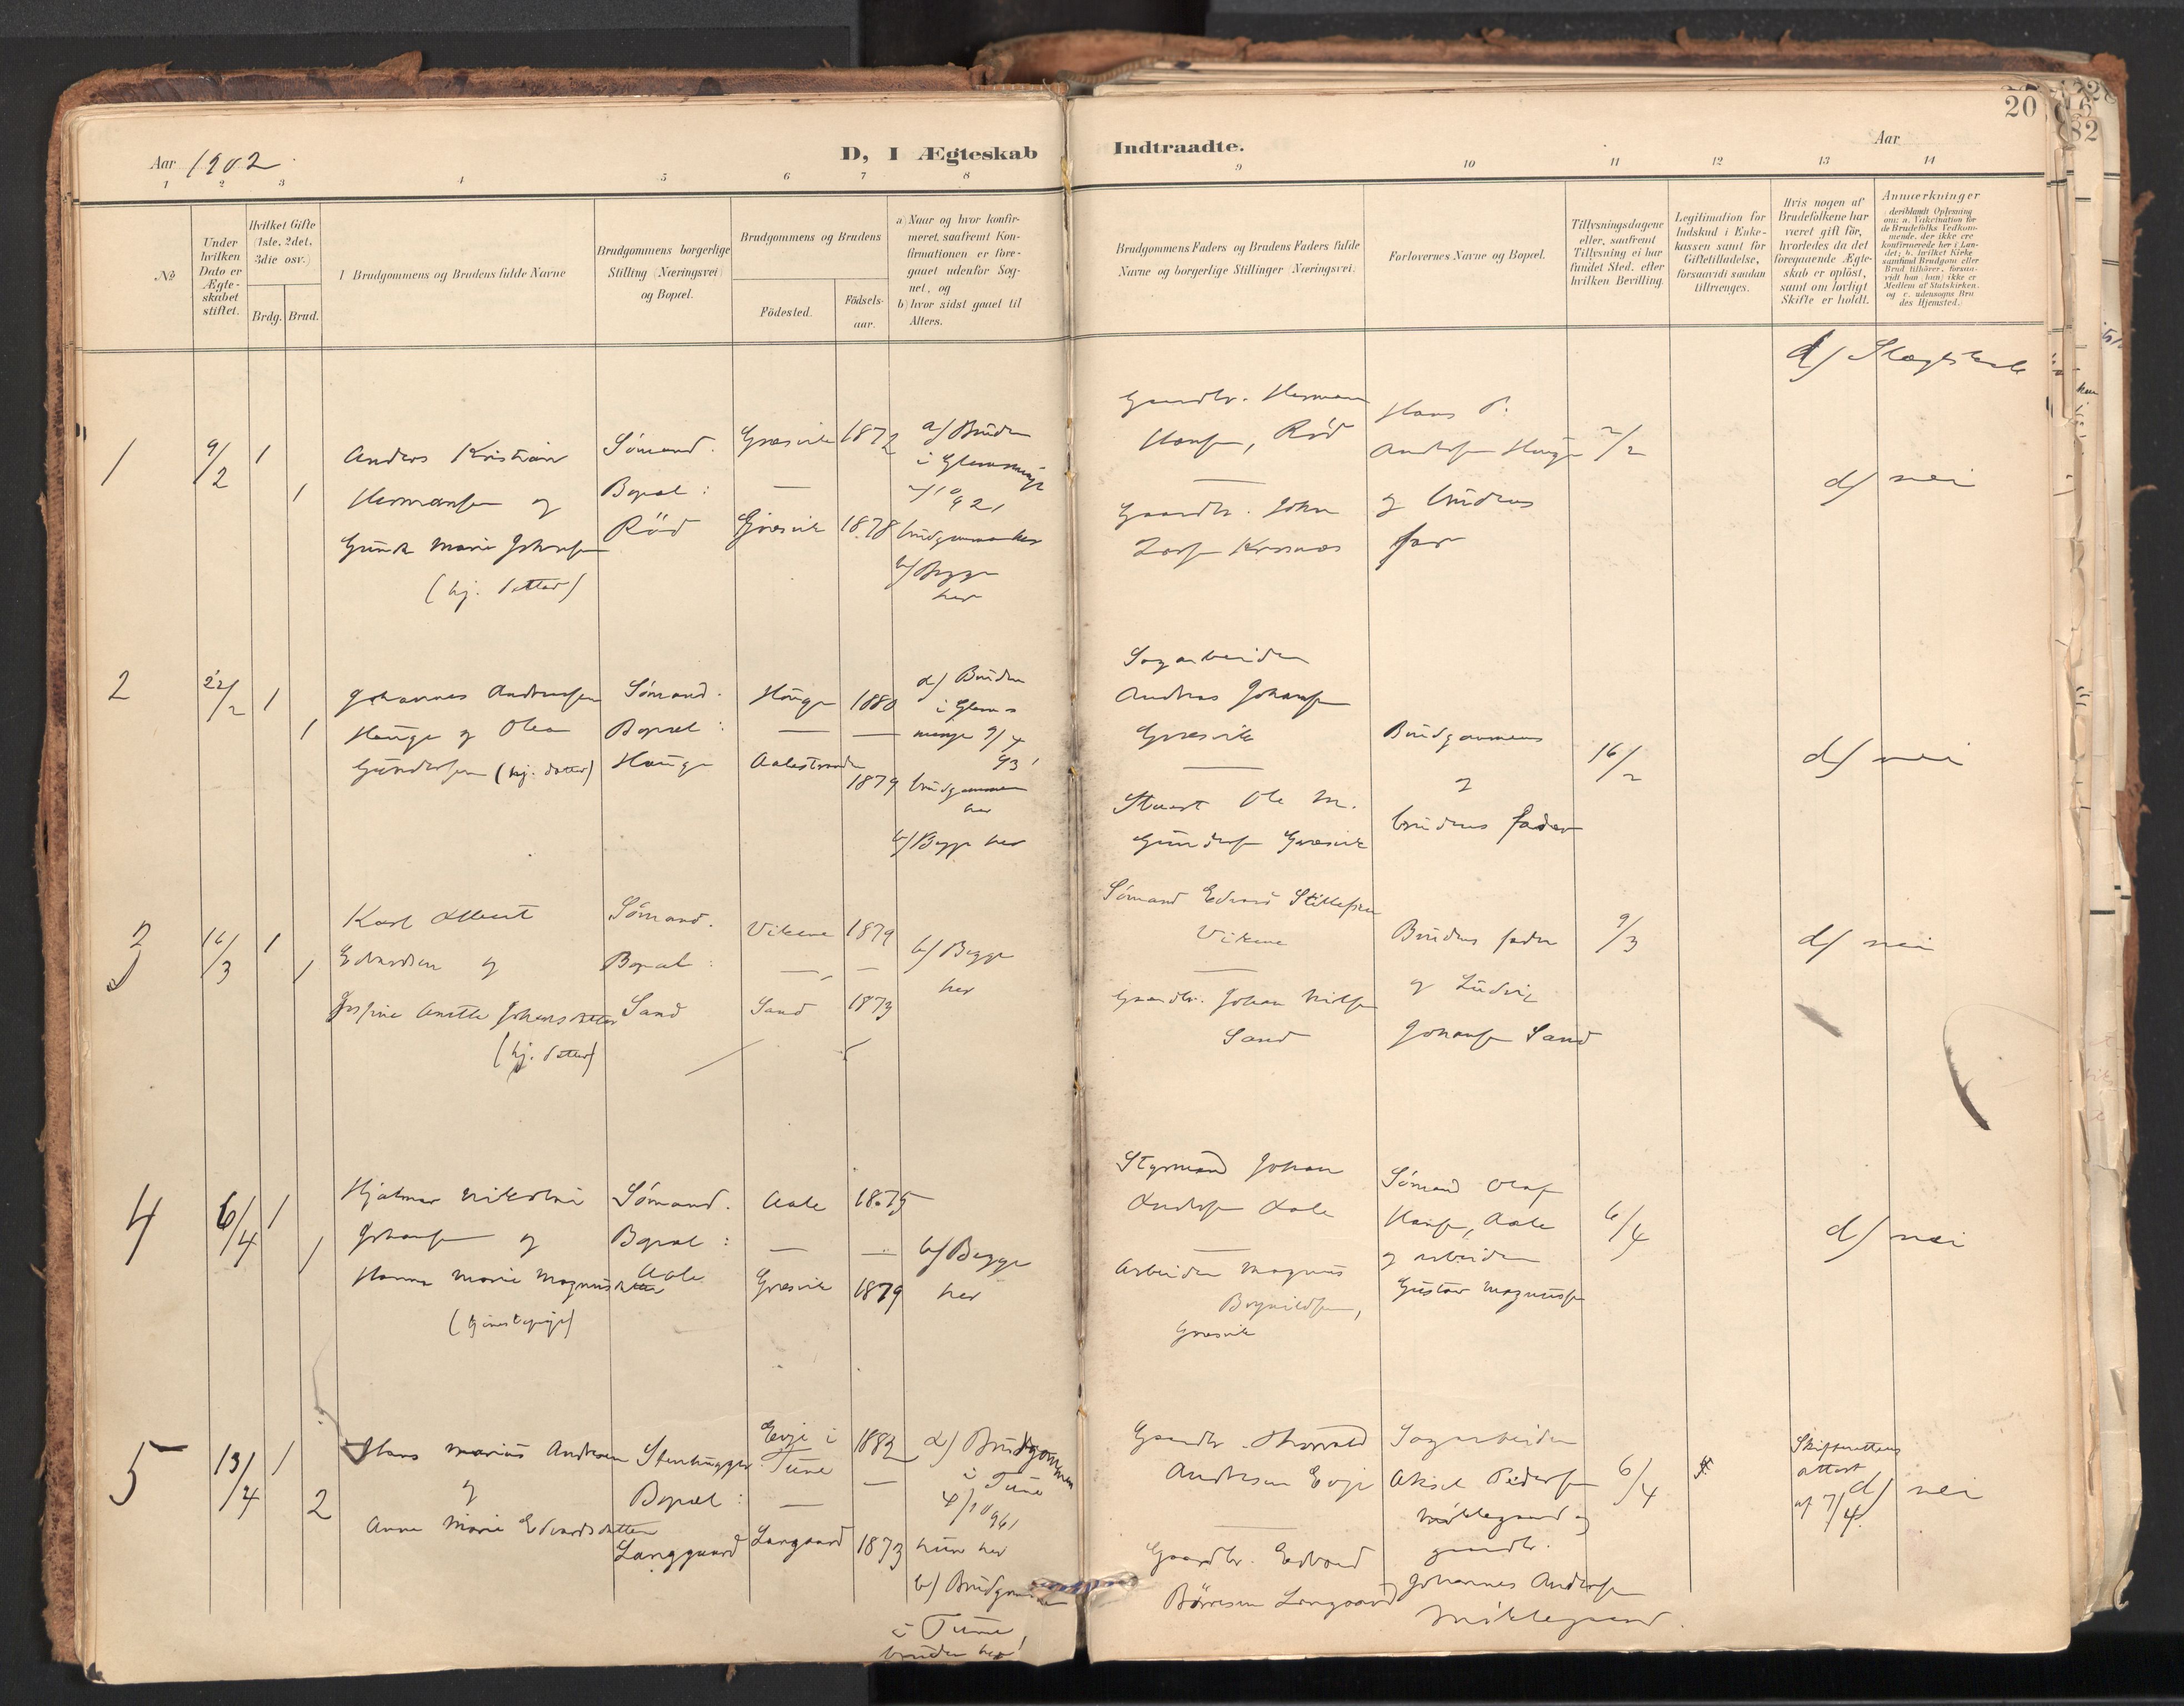 20
Aar 1902
D, I Ægteskab
Indtraadte.
Aar
1 2 3 4 5 6 7 8 9 10 11 12 13 14
№
Under
hvilken
Dato er
Ægte-
skabet
stiftet.
Hvilket Gifte
(1ste, 2det,
3die osv.)
Brdg.
Brud.
Brudgommens og Brudens fulde Navne
Brudgommens borgerlige
Stilling (Næringsvei)
og Bopæl.
Brudgommens og Brudens
Födested.
Födsels-
aar.
a) Naar og hvor konfir-
meret, saafremt Kon-
firmationen er fore-
gaaet udenfor Sog-
net, og
b) hvor sidst gaaet til
Alters.
Brudgommens Faders og Brudens Faders fulde
Navne og borgerlige Stillinger (Næringsvei).
Forlovernes Navne og Bopæl.
Tillysningsdagene
eller, saafremt
Tillysning ei har
fundet Sted, efter
hvilken Bevilling.
Legitimation for
Indskud i Enke-
kassen samt for
Giftetilladelse,
forsaavidt saadan
tiltrænges.
Hvis nogen af
Brudefolkene har
været gift för,
hvorledes da det
foregaaende Ægte-
skab er oplöst,
samt om lovligt
Skifte er holdt.
Anmærkninger
(deriblandt Oplysning
om: a. Vakcination for
de Brudefolks Vedkom-
mende, der ikke ere
konfirmerede her i Lan-
det; b. hvilket Kirke-
samfund Brudgom eller
Brud tilhörer, forsaa-
vidt han (hun) ikke er
Medlem af Statskirken,
og c. udensogns Bru-
des Hjemsted.)
d/ Slægtskab
1
9/2
1
1
Anders Kristian
Hermansen og
Gunda Marie Johnsen
(hj. datter)
Sømand.
Bopæl:
Röd
Græsvik
Græsvik
1872
1878
a/ Bruden
i Glemminge
brudgommen her
b/ Begge
her
Gaardbr. Herman
Hansen, Röd
Gaardbr. John
Hans P.
Andersen Hauge
og brudens
far
2/2
d/ nei
2
22/2
1
1
Johannes Andreassen
Hauge og Olea
Gundersen (hj. datter)
Sømand.
Bopæl:
Hauge
Hauge
Aalestranden
1880
1879
a/ Bruden
i Glem-
minge 9/4
93!
brudgommen
her
b/ Begge her
Sagarbeider
Andreas Johansen
Græsvik
Ole M.
Gundersen Græsvik
Brudgommens
og
brudens fader
16/2
d/ nei
3
16/3
1
1
Karl Albert
Edvardsen og
Josefine Anette Johansdatter
(hj. datter)
Sømand.
Bopæl:
Sand
Vikene
Sand
1879
1873
b/ Begge
her
Sømand Edvard
Vikene
Gaardbr. Johan Nilsen
Sand
Brudens fader
og Ludvig
Johansen Sand
9/3
d/ nei
4
6/4
1
1
Hjalmar Nikolai
Johansen og
Hanna Marie Magnusdatter
(tjenestepige)
Sømand.
Bopæl:
Aale
Aale
Græsvik
1875
1879
b/ Begge
her
Styrmand Johan
Andersen Aale
Arbeider Magnus
Græsvik
Sømand Olaf
Hansen, Aale
og arbeider
Gustav Magnussen
6/4
d/ nei
5
13/4
1
2
Hans Marius Andresen
og
Anna Marie Edvardsdatter
Stenhugger
Bopæl:
Langgaard
Evje i
Tune
Langgaard
1882
1873
a/ Brudgommen
i Tune
4/10 96!
hun her
b/ Brudgommen
i Tune,
bruden her!
Gaardbr. Thorvald
Andresen Evje
Gaardbr. Edvard
Börresen Langgaard
Sagarbeider
Aksel Pedersen
Møklegaard og
gaardbr.
Johannes Andersen
Møklegaard.
6/4
Skifterettens
attest
af 7/4
d/ nei